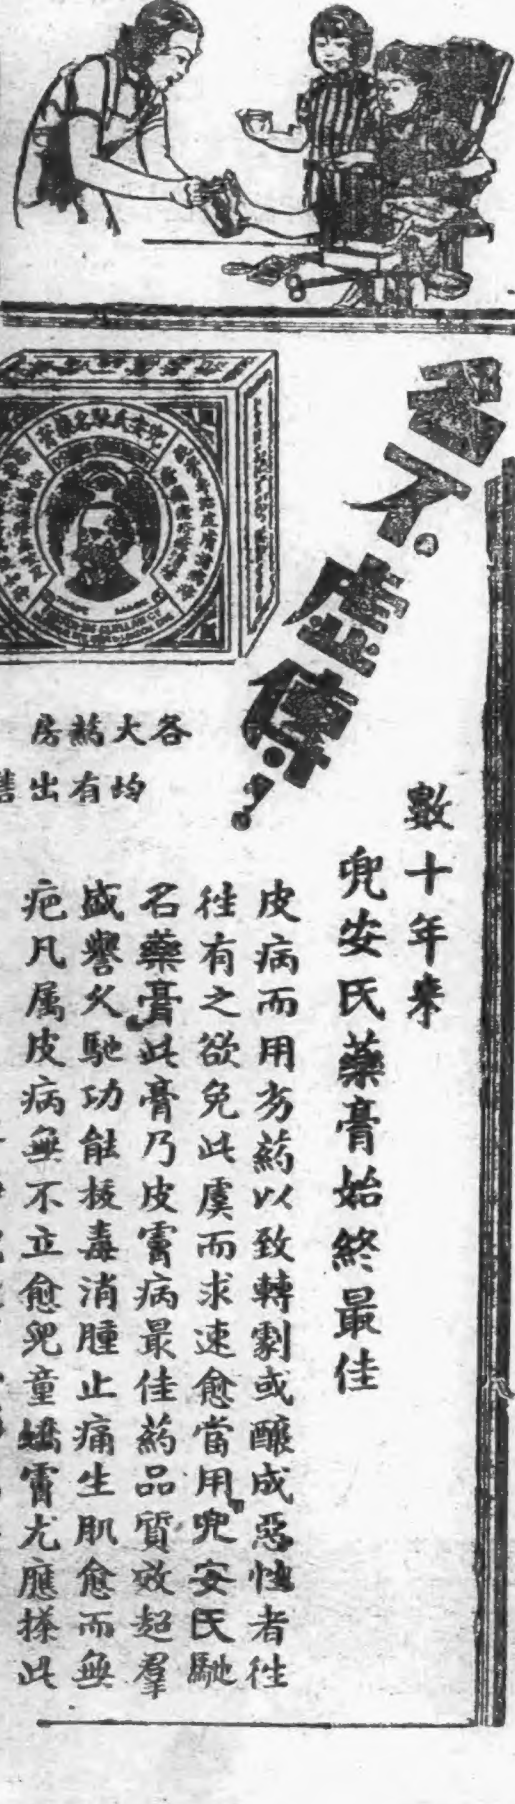 名不虛傳!
兜安氏馳名藥膏
各大葯房
均有出售
數十年來
兜安氏藥膏始終最佳
皮病而用劣葯以致轉劇或釀成惡性者往
往有之欲免此虞而求速愈當用『兜安氏馳
名藥膏』此膏乃皮膚病最佳葯品質效超羣
盛譽久馳功能拔毒消腫止痛生肌愈而無
疤凡属皮病無不立愈兒童嬌膚尤應搽此